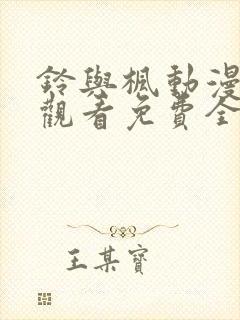 鈴與楓動漫
觀看免費全
王某寶